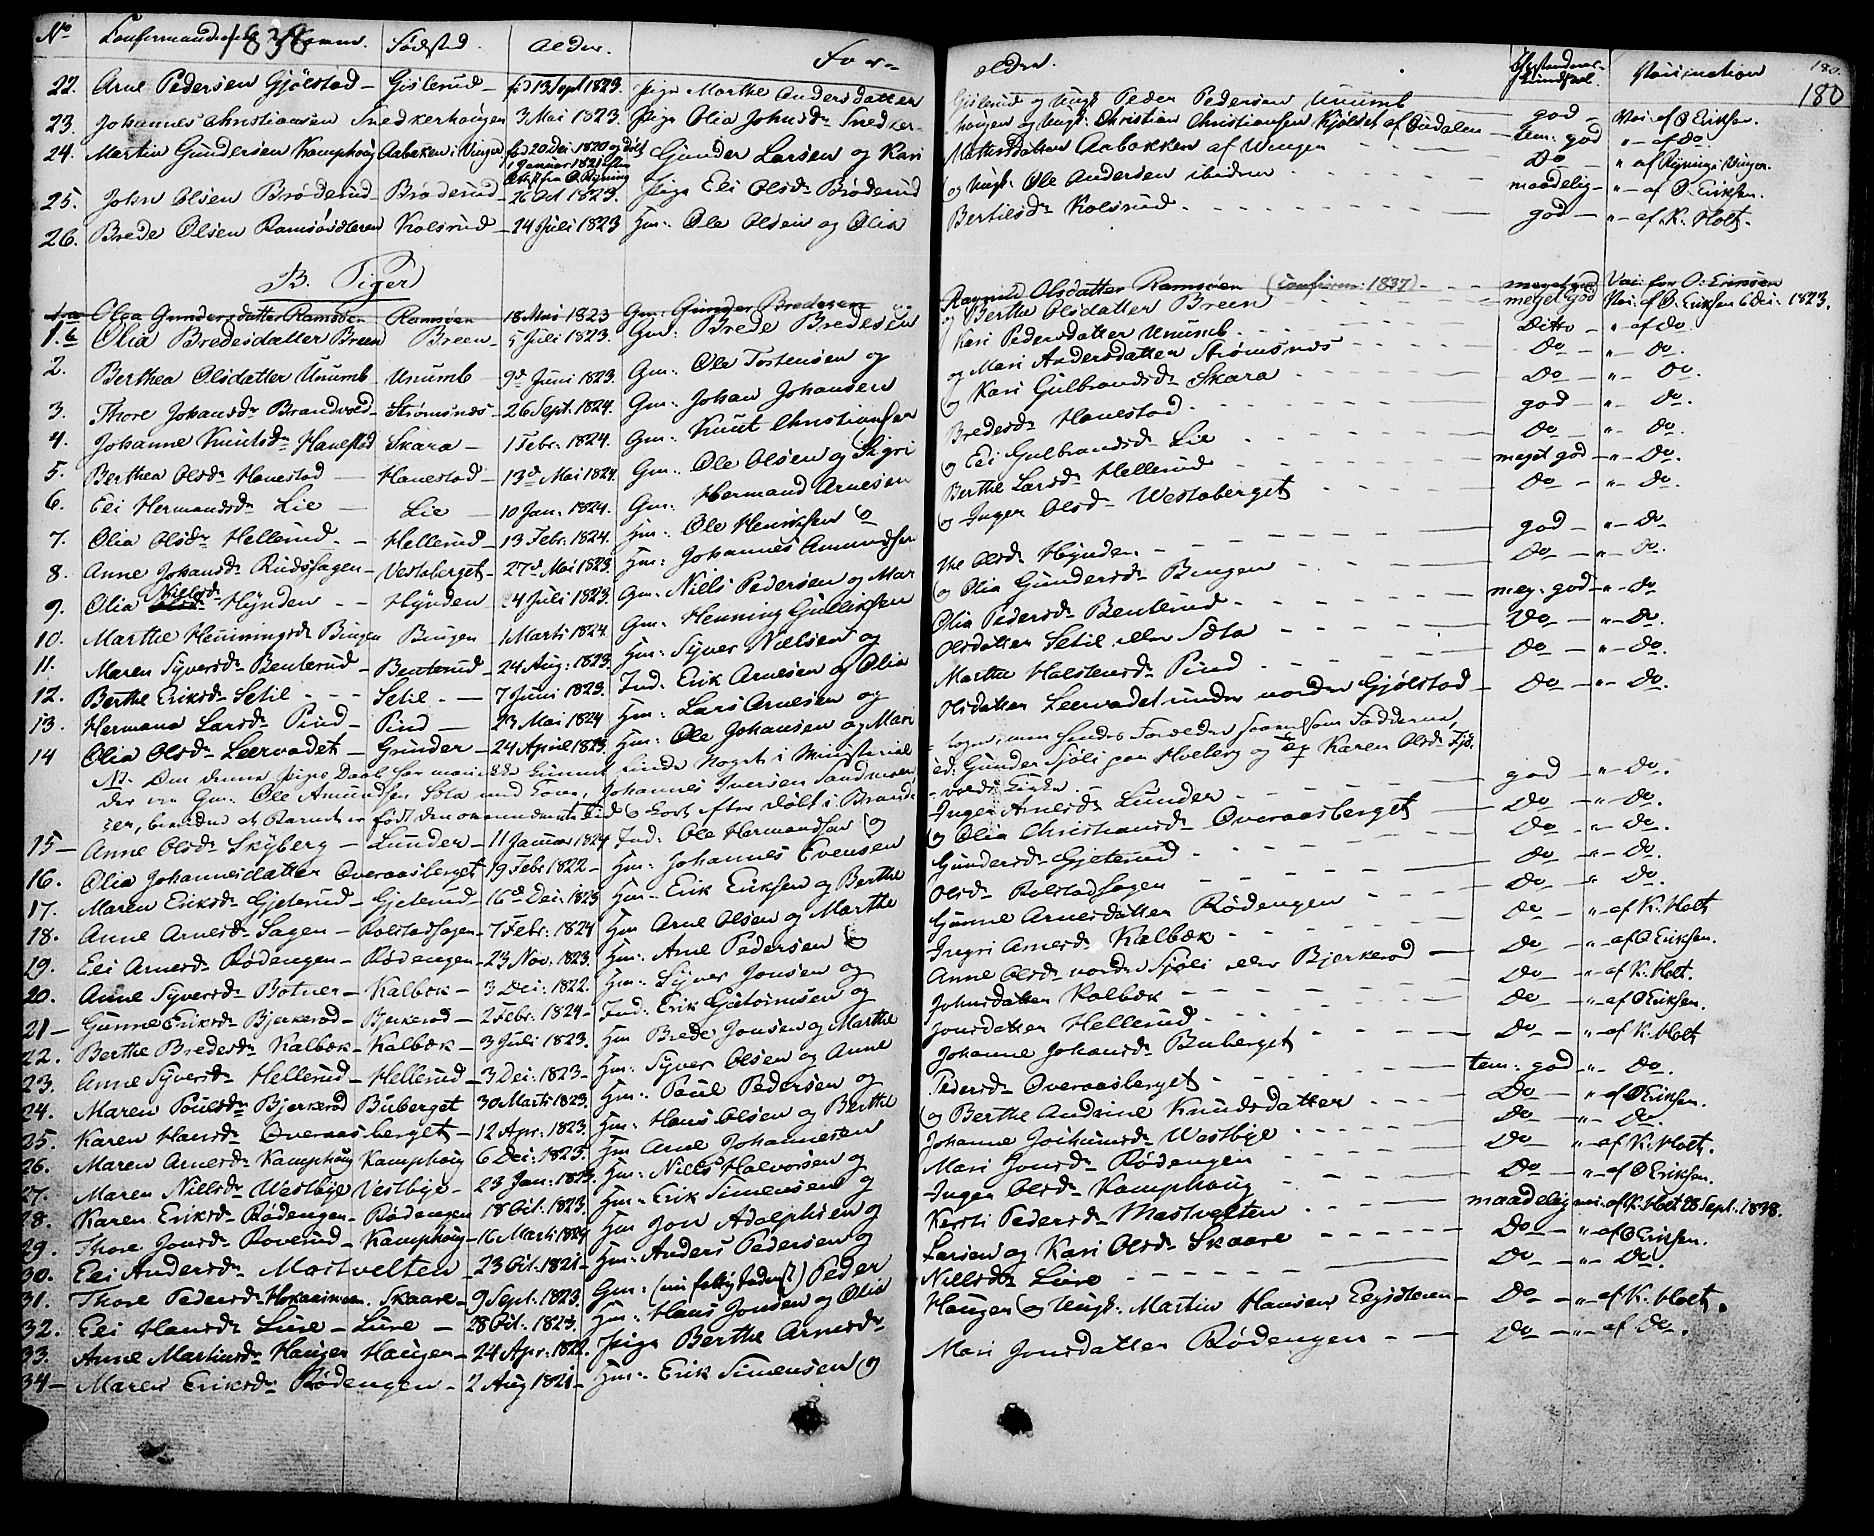 No Confirmandernes Navne. 1838 Födsted. Alder. For- ældre. Kundskab. Vaccination 180
22. Arne Pedersen Gjölstad Gislerud fö. 13 Sept 1823. Pige Marthe Andersdatter Gislerud og Ungk. Peder Pedersen Unumb god Vac. af O. Eriksen.
23. Johannes Christiansen Snedkerhougen 3 Mai 1823. Pige Olia Johnsdr Snedker- hougen og Ungk: Christian Christiansen Kjölset af Odalen tem: god " af do
24. Martin Gundersen Kamphoug Aabakken i Vinger fö 20 Dec: 1820 og döbt 1 Januar 1821 Gunder Larsen og Kari Mathisdatter Aabakken af Winger Do " af Ryning i Vinger.
25. John Olsen Bröderud Bröderud 26 Oct 1823. Pige Eli Olsdr Bröderud og Ungk: Ole Andersen ibidem maadelig " af O. Eriksen.
26. Brede Olsen Ramsösæteren Kolsrud 24 Juli 1823 Hm: Ole Olsen og Olia Bertilsdr Kolsrud. god " af K. Holt.
B. Piger
Olga Gundersdatter Ramsöen Ramsöen 18 Mai 1823 Gm: Gunder Bredesen Ragnild Olsdatter Ramsöen (Confirm: 1837) meget god Vac: for O. Eriksen
1. Olia Bredesdatter Breen Breen 5 Juli 1823. Gm: Brede Bredesen og Berthe Olsdatter Breen meget god Vac: af O. Eriksen 6 Dec: 1823.
2. Berthea Olsdatter Unumb Unumb 9de Juni 1823. Gm: Ole Tostensen og Kari Pedersdatter Unumb. Ditto " af do
3. Thore Johansdr Brandvold Strömsnæs 26 Sept. 1824. Gm: Johan Johansen og Mari Andersdatter Strömsnæs Do " Do.
4. Johanne Knutsdr Hanestad Skara 1 Febr. 1824. Gm: Knut Christiansen og Kari Gulbrandsdr Skara Do " Do.
5. Berthea Olsdr Hanestad Hanestad 13de Mai 1824 Gm: Ole Olsen og Sigri Bredesdr Hanestad. god " Do.
6. Eli Hermandsdr Lie Lie 10 Jan. 1824. Gm: Hermand Arnesen og Eli Gulbrandsdr Lie Do " Do.
7. Olia Olsdr Hellerud Hellerud 13 Febr. 1824. Hm: Ole Henriksen og Berthe Larsdr Hellerud meget god " Do.
8. Anne Johansdr Rudshagen Vestaberget 27de Mai 1823. Hm: Johannes Amundsen og Inger Olsd. Westaberget Do " Do.
9. Olia Nillsdr Hynden Hynden 4 Juli 1823. Gm: Nills Pedersen og Mar the Olsdr Hynden. god " Do
10. Marthe Henningsdr Bingen Bingen 1 Marti 1824. Gm: Henning Gulliksen og Olia Gundersdr Bingen Do " Do.
11. Maren Syversdr Benterud Benterud 24 Aug: 1823. Hm: Syver Nielsen og Olia Pedersdr Benterud meg: god " Do
12. Berthe Eriksdr Setil Setil 7 Juni 1823. Ind: Erik Arnesen og Olia Olsdatter Setil eller Sæta Do " Do.
13. Hermana Larsdr Pind Pind 23 Mai 1824 Hm: Lars Arnesen og Marthe Halstensdr Pind Do " Do.
14 Olia Olsdr Leervadet Grinder 24 April 1823. Hm: Ole Johansen og Mari Olsdatter Leervadet under nordre Gjölstad Do " Do.
NB. Om denne Piges Daab har man ikke kunnet finde Noget i Ministerial bogen, men hendes Forældre saavelsom Fadderne,
der var Gm: Ole Amundsen Sota med Kone, Johannes Iversen Sandmoen ed: Gunder Sjöli paa Hveberg og Karen Olsdr
er, bevidne at Barnet er födt den ommeldte Tid og kort efter döbt i Brand- vold Kirke.
15 Anne Olsdr Skyberg Lunder 11 Januar 1824 Ind: Ole Hermandsen og Inger Arnesdr Lunder god " Do.
16. Olia Johannesdatter Overaasberget 19 Febr. 1822 Hm: Johannes Evensen og Olia Christiansdr Overaasberget Do " Do.
17. Maren Eriksdr Gjeterud Gjeterud 16de Dec: 1823 Hm: Erik Eriksen og Berthe Gundersdr Gjeterud Do " Do.
18. Anne Arnesdr Sagen Rolstadsagen 7 Febr. 1824 Hm Arne Olsen og Marthe Olsdr Rolstadsagen Do " Do.
19. Eli Arnesdr Rödengen Rödengen 23 Nov. 1823. Hm: Arne Pedersen og Gunne Arnesdatter Rödengen Do " Do.
20. Anne Syversdr Botner Kalbæk 3 Dec: 1822. Hm: Syver Jonsen og Ingri Arnesdr Kalbæk Do " af K. Holt
21 Gunne Eriksdr Bjerkerod Bjerkerod 2 Febr: 1824 Ind: Erik Guttormsen og Anne Olsdr nordre Sjöli eller Bjerkerod Do " af O Eriksen.
22. Berthe Bredesdr Kalbæk Kalbæk 3 Juli 1823. Hm Brede Jonsen og Marthe Johnsdatter Kalbæk Do " af K. Holt.
23. Anne Syversdr Hellerud Hellerud 3 Dec: 1823 Hm: Syver Olsen og Anne Jonsdatter Hellerud Do " af O Eriksen.
24. Maren Poulsdr Bjerkerod Buberget 30 Marti 1823. Hm: Paul Pedersen og Johanne Johansdr Buberget Do " af K. Holt
25. Karen Hansdr Overaasberget 12 Apr: 1823. Hm: Hans Olsen og Berthe Pedersdr Overaasberget tem: god " Do.
26. Maren Arnesdr Kamphoug Kamphoug 6 Dec: 1823. Hm Arne Johannesen og Berthe Andrine Knudsdatter Do " af O Eriksen.
27. Maren Nillsdr Westbye Vestbye 23 Jan: 1823. Hm: Nills Halvorsen og Johanne Jochumsdr Westbye Do " Do.
28. Karen Eriksdr Rödengen Rödengen 18 Oct. 1823. Hm: Erik Simensen og Mari Jonsdr Rödengen Do " af K. Holt.
29. Thore Jonsdr Roverud Kamphoug 16 Marti 1824 Hm Jon Adolphsen og Inger Olsdr Kamphoug Do " af O Eriksen.
30. Eli Andersdr Mastvelten 23 Oct. 1821 Hm: Anders Pedersen og Kersti Pedersdr Mastvelten maadelig vac: af K. Holt 28 Sept. 1838.
31. Thore Pedersdr Skaare 9 Sept. 1823. Gm: Peder Larsen og Kari Olsdr Skaare Do " af O Eriksen.
32. Eli Hansdr Lure Lure 28 Oct. 1823. Hm: Hans Jonsen og Olia Nillsdr Lure Do " Do.
33. Anne Martinsdr Haugen Haugen 24 Apr: 1822. Pige Berthe Arnesdr Haugen og Ungk: Martin Hansen Do " af K. Holt.
34 Maren Eriksdr Rödengen 2 Aug 1821 Hm: Erik Simensen og Mari Jonsdatter Rödengen Do " af Do.